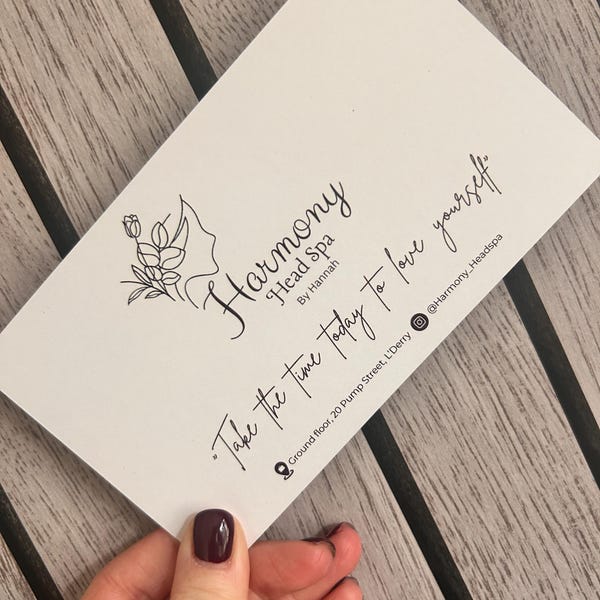 Harmony
Head Spa
By Hannah
"Take the time today to love yourself"
Ground floor, 20 Pump Street, L'Derry @Harmony_Headspa